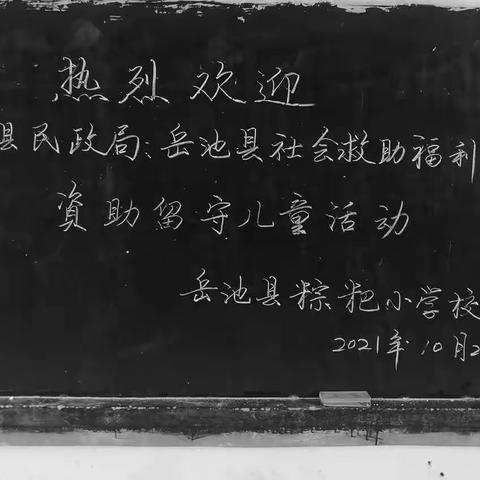 热烈欢迎
县民政局:岳池县社会救助福利
資助留守儿童活动
岳池县粽粑小学校
2021年10月2